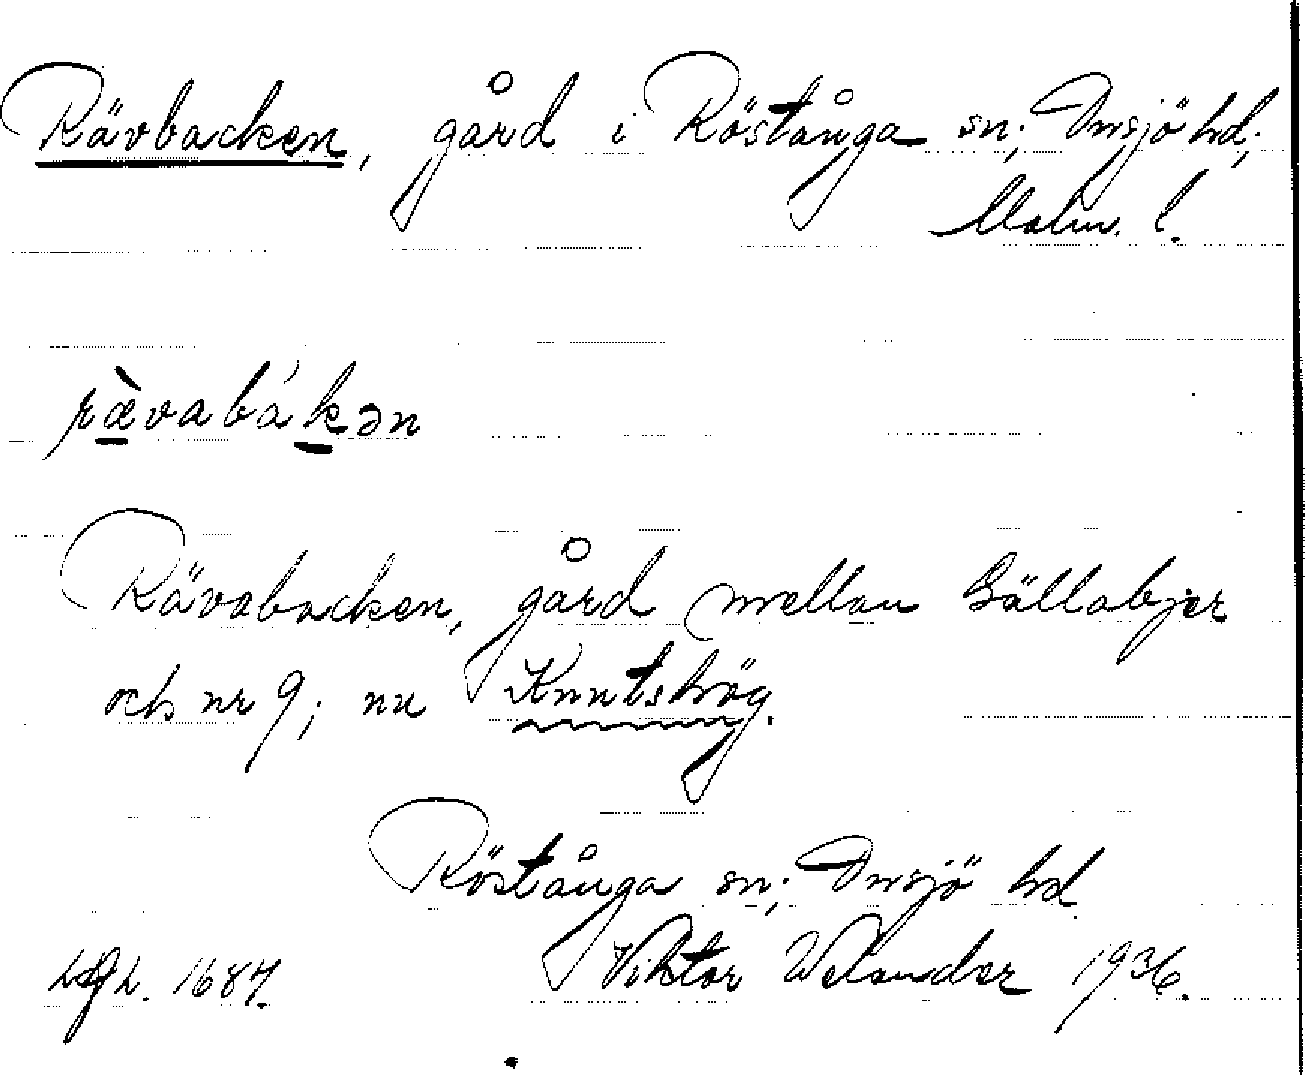 Rävbacken, gård i Röstånga sn; Onsjö hd;
Malm. l.
ræ̀vabákən
Rävabacken, gård mellan Bällabjer
och nr 9; nu Knutshög.
Röstånga sn; Onsjö hd
Viktor Welander 1936.
1687.